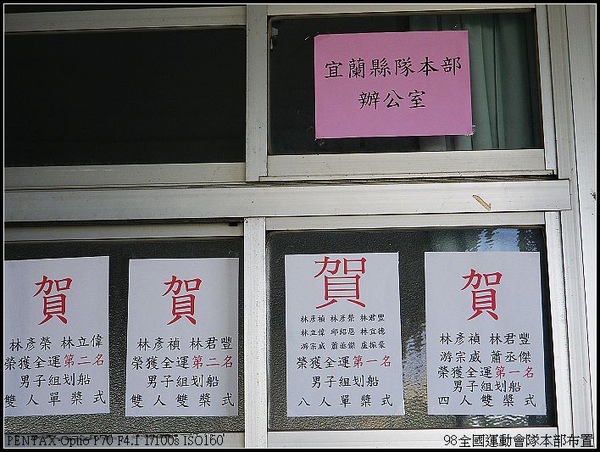 宜蘭縣隊本部
辦公室
賀
林彥榮 林立偉
榮獲全運第二名
男子組划船
雙人單槳式
賀
林彥禎 林君豐
榮獲全運第二名
男子組划船
雙人雙槳式
賀
林彥禎 林彥榮 林君豐
林立偉 邱紹恩 林宜德
游宗威 蕭丞傑 盧振豪
榮獲全運第一名
男子組划船
八人單槳式
賀
林彥禎 林君豐
游宗威 蕭丞傑
榮獲全運第一名
男子組划船
四人雙槳式
PENTAX Optio P70 F4.1 1/100s ISO160
98全國運動會隊本部布置